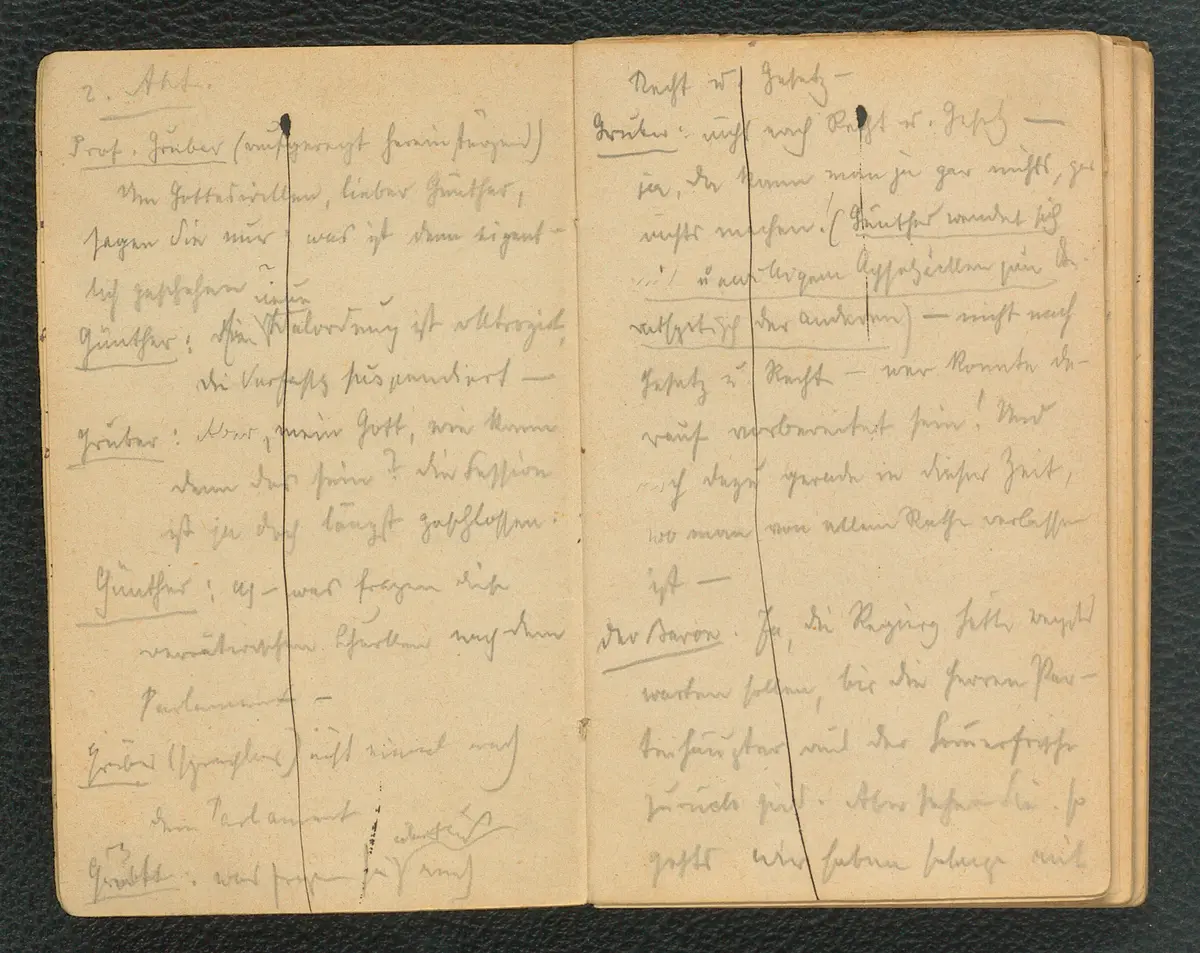 2. Akt.
Prof. Gruber (aufgeregt hereinstürzend)
Um Gotteswillen, lieber Günther,
sagen Sie nur: was ist denn eigent-
lich geschehen?
neue
Günther: Die Wahlordnung ist oktroyiert,
die Verfassg suspendiert —
Gruber: Aber, mein Gott, wie kann
denn das sein? Die Session
ist ja doch längst geschlossen.
Günther: Ah — was fragen diese
verräterischen Schurken nach dem
Parlament —
Gruber (sprachlos) nicht einmal nach
dem Parlament
: was fragen sie nach
Recht u. Gesetz —
Gruber: nicht nach Recht u. Gesetz —
ja, da kann man ja gar nichts, gar
nichts machen! (Günther wendet sich
unwilligem Achselzucken zum
der anderen) — nicht nach
Gesetz u. Recht — wer konnte da-
rauf vorbereitet sein! Und
noch dazu gerade in dieser Zeit,
wo man von allem Rathe verlassen
ist —
Der Baron. Ja, die Regierg hätte
warten sollen, bis die Herren Par-
teihäupter aus der Sommerfrische
zurück sind. Aber sehen Sie, so
gehts wir haben solange mit